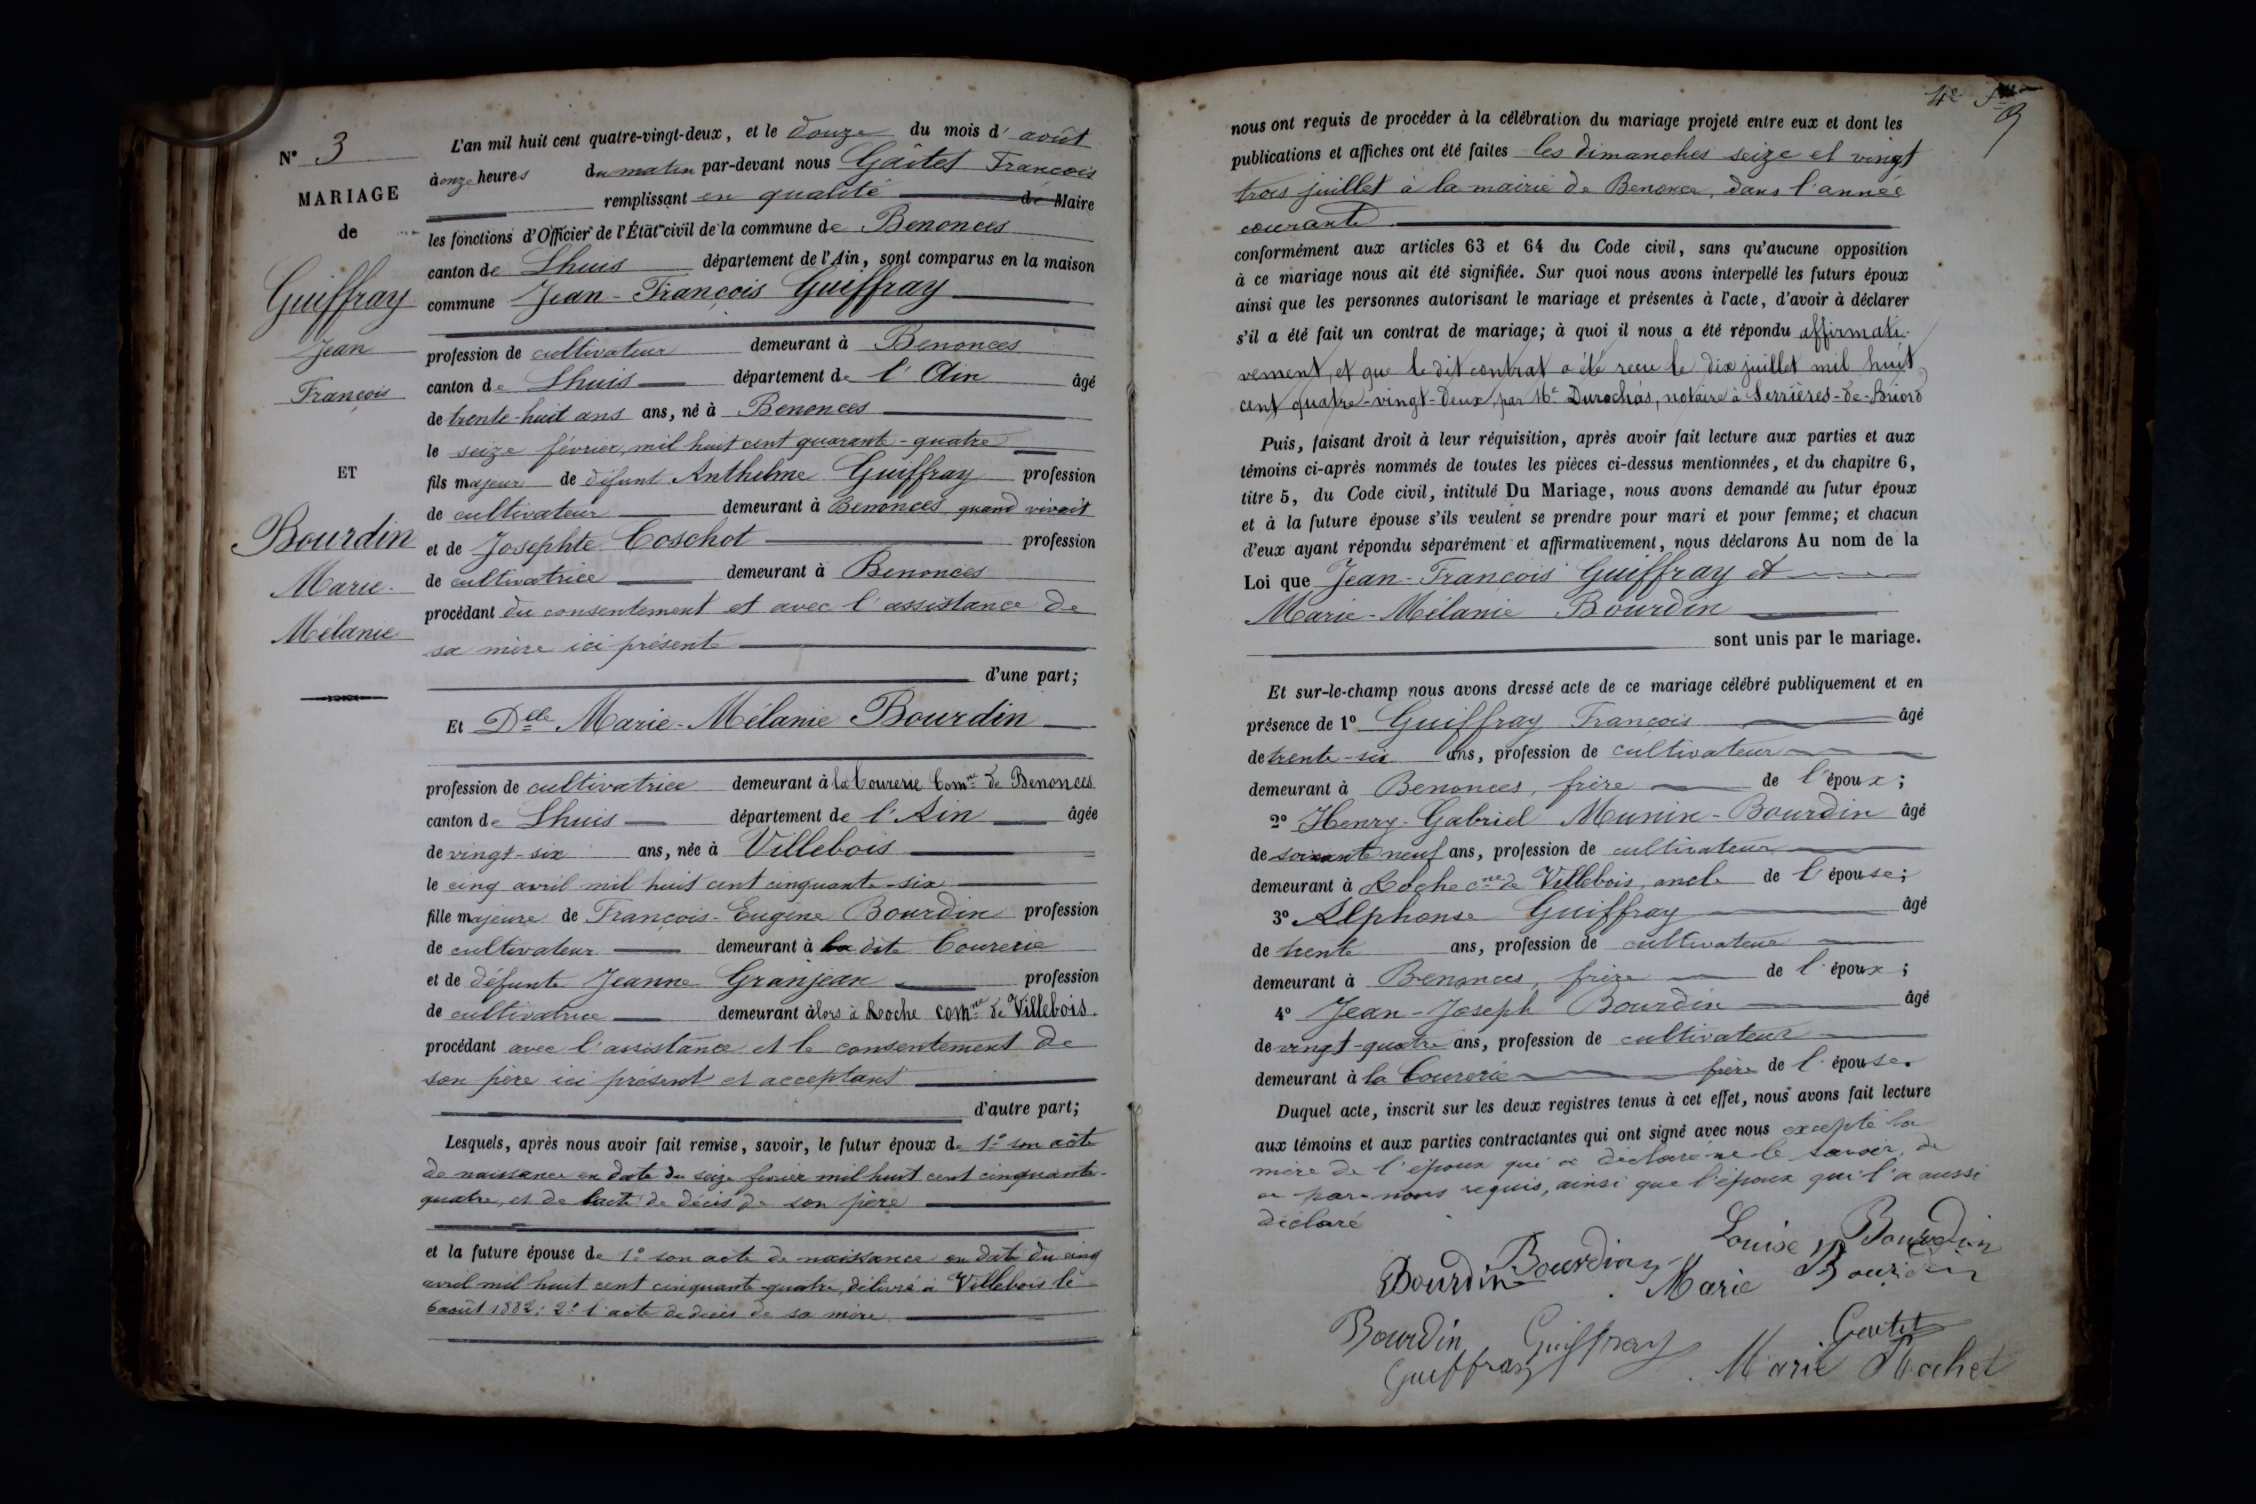 N° 3
MARIAGE
de
Guiffray
Jean
François
ET
Bourdin
Marie-
Mélanie
L'an mil huit cent quatre-vingt-deux, et le douze du mois d' août
à onze heures du matin par-devant nous François
remplissant en qualité de Maire
les fonctions d'Officier de l'État civil de la commune de Benonces
canton de Lhuis département de l'Ain, sont comparus en la maison
commune Jean-François Guiffray
profession de cultivateur demeurant à Benonces
canton de Lhuis département de l'Ain âgé
de trente-huit ans ans, né à Benonces
le seize février, mil huit cent quarante-quatre
fils majeur de défunt Anthelme Guiffray profession
de cultivateur demeurant à Benonces quand vivait
et de Josephte Coschot profession
de cultivatrice demeurant à Benonces
procédant du consentement et avec l'assistance de
sa mère ici présente
d'une part;
Et Delle Marie-Mélanie Bourdin
profession de cultivatrice demeurant à la Courerie Comne de Benonces
canton de Lhuis département de l'Ain âgée
de vingt-six ans, née à Villebois
le cinq avril mil huit cent cinquante-six
fille majeure de François-Eugène Bourdin profession
de cultivateur demeurant à la dite Courerie
et de défunte Jeanne Granjean profession
de cultivatrice demeurant à lors à Roche comne de Villebois.
procédant avec l'assistance et le consentement de
son père ici présent et acceptant
d'autre part;
Lesquels, après nous avoir fait remise, savoir, le futur époux de 1° son acte
de naissance en date du seize fevrier mil huit cent cinquante-
quatre, et de l'acte de décès de son père
et la future épouse de 1° son acte de naissance en date du cinq
avril mil huit cent cinquante-quatre, délivré à Villebois le
6 août 1882; 2° l'acte de décès de sa mère
42
9
nous ont requis de procéder à la célébration du mariage projeté entre eux et dont les
publications et affiches ont été faites les dimanches seize et vingt
trois juillet à la mairie de Benonces, dans l'année
courante
conformément aux articles 63 et 64 du Code civil, sans qu'aucune opposition
à ce mariage nous ait été signifiée. Sur quoi nous avons interpellé les futurs époux
ainsi que les personnes autorisant le mariage et présentes à l'acte, d'avoir à déclarer
s'il a été fait un contrat de mariage; à quoi il nous a été répondu affirmati-
vement, et que le dit contrat a été reçu le dix juillet mil huit
cent quatre-vingt-deux, par Me Durochas, notaire à Serrières-de-Briord
Puis, faisant droit à leur réquisition, après avoir fait lecture aux parties et aux
témoins ci-après nommés de toutes les pièces ci-dessus mentionnées, et du chapitre 6,
titre 5, du Code civil, intitulé Du Mariage, nous avons demandé au futur époux
et à la future épouse s'ils veulent se prendre pour mari et pour femme; et chacun
d'eux ayant répondu séparément et affirmativement, nous déclarons Au nom de la
Loi que Jean-François Guiffray et
Marie-Mélanie Bourdin
sont unis par le mariage.
Et sur-le-champ nous avons dressé acte de ce mariage célébré publiquement et en
présence de 1° Guiffray François âgé
de trente-six ans, profession de cultivateur
demeurant à Benonces, frère de l'époux;
2° Henry-Gabriel Munin-Bourdin âgé
de soixante neuf ans, profession de cultivateur
demeurant à Roche cne de Villebois, oncle de l'épouse;
3° Alphonse Guiffray âgé
de trente ans, profession de cultivateur
demeurant à Benonces, frère de l'époux;
4° Jean-Joseph Bourdin âgé
de vingt-quatre ans, profession de cultivateur
demeurant à la Courerie frère de l'épouse.
Duquel acte, inscrit sur les deux registres tenus à cet effet, nous avons fait lecture
aux témoins et aux parties contractantes qui ont signé avec nous excepté la
mère de l'époux qui a déclaré ne le savoir, de
ce par nous requis, ainsi que l'époux qui l'a aussi
déclaré
Louise Bourdin
Bourdin Bourdin Marie Bourdin
Bourdin Guiffray
Guiffray Marie